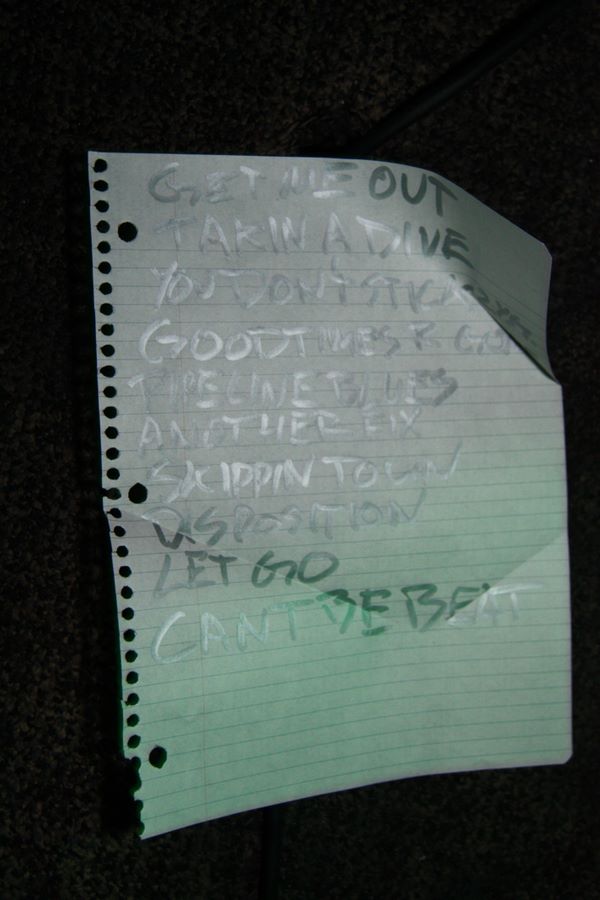 GET ME OUT
TAKIN A DIVE
YOU DON'T STICK
GOODTIMES R GON
PIPELINE BLUES
ANOTHER FIX
SKIPPIN TOWN
DISPOSITION
LET GO
CANT BE BEAT